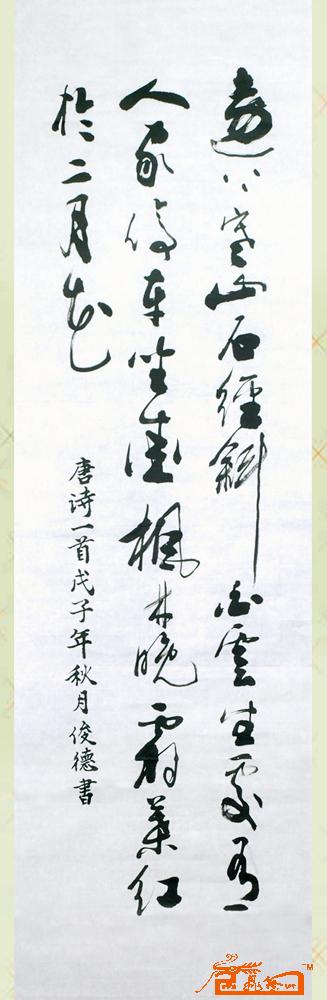 遠上寒山石徑斜白雲生處有
人家停車坐愛楓林晚霜葉紅
於二月花
唐诗一首戊子年秋月俊德書
TM